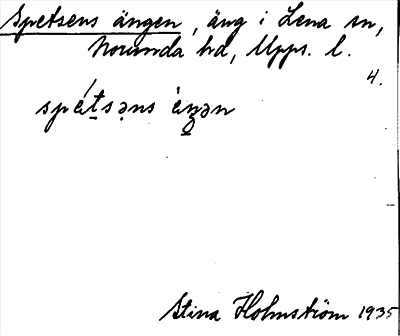 Spetsens ängen, äng i Lena sn,
Norunda hd, Upps. l.
4.
spét̠sə̣ns èŋ̠ən
Stina Holmström 1935